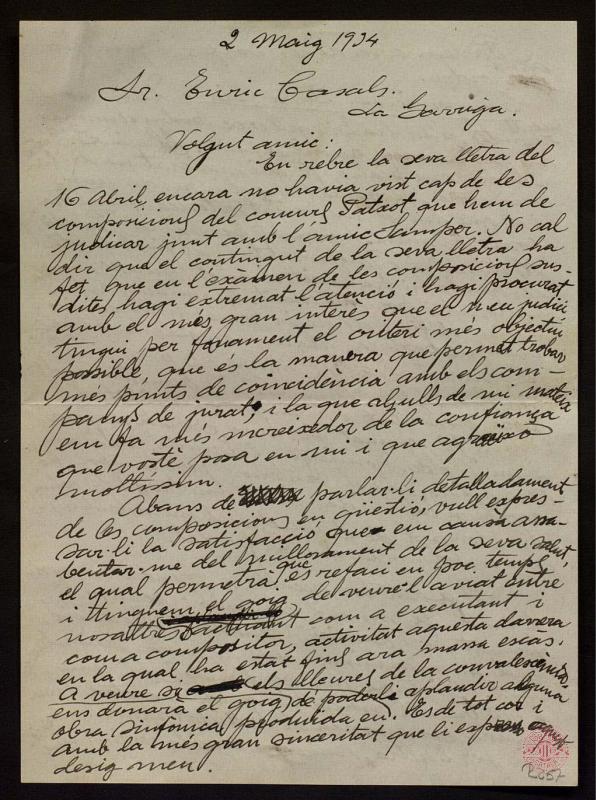 2 Maig 1934
Sr. Enric Casals.
La Garriga.
Volgut amic:
En rebre la seva lletra del
16 Abril, encara no havia vist cap de les
composicions del concurs Patxot que hem de
judicar junt amb l'amic Samper. No cal
dir que el contingut de la seva lletra ha
fet que en l'exàmen de les composicions sus-
dites, hagi extremat l'atenció i hagi procurat
amb el més gran interès que el meu judici
tingui per fonament el criteri més objectiu
possible, que és la manera que permet trobar
més punts de coincidència amb els com-
panys de jurat, i la que als ulls de mi mateix
em fa més mereixedor de la confiança
que vostè posa en mi i que agraeixo
moltíssim.
Abans de parlar-li detalladament
de les composicions en qüestió, vull expres-
sar-li la satisfacció que em causà assa-
bentar-me del millorament de la seva salut,
el qual permetrà que es refaci en poc temps
i tinguem el goig de veure'l aviat entre
nosaltres actuant com a executant i
com a compositor, activitat aquesta darrera
en la qual ha estat fins ara massa escàs.
A veure si els lleures de la convalescència
ens donarà el goig de poder-li aplaudir alguna
obra simfònica produida en. Es de tot cor i
amb la més gran sinceritat que li exp aquest
desig meu.
R.657